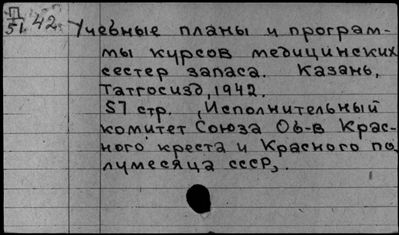 П
51. 42. Учебные планы и програм-
мы курсов медицинских
сестер запаса. Казань,
Татгосизд, 1942.
57 стр. (Исполнительный
комитет Союза Об-в Крас-
ного креста и Красного по
лумесяца СССР).